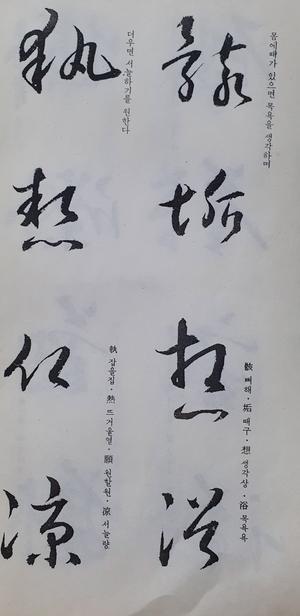 몸에때가 있으면 목욕을 생각하며
骸垢想浴
骸 뼈해·垢 때구·想 생각상·浴 목욕욕
더우면 서늘하기를 원한다
執熱願凉
執 잡을집·熱 뜨거울열·願 원할원·涼 서늘량